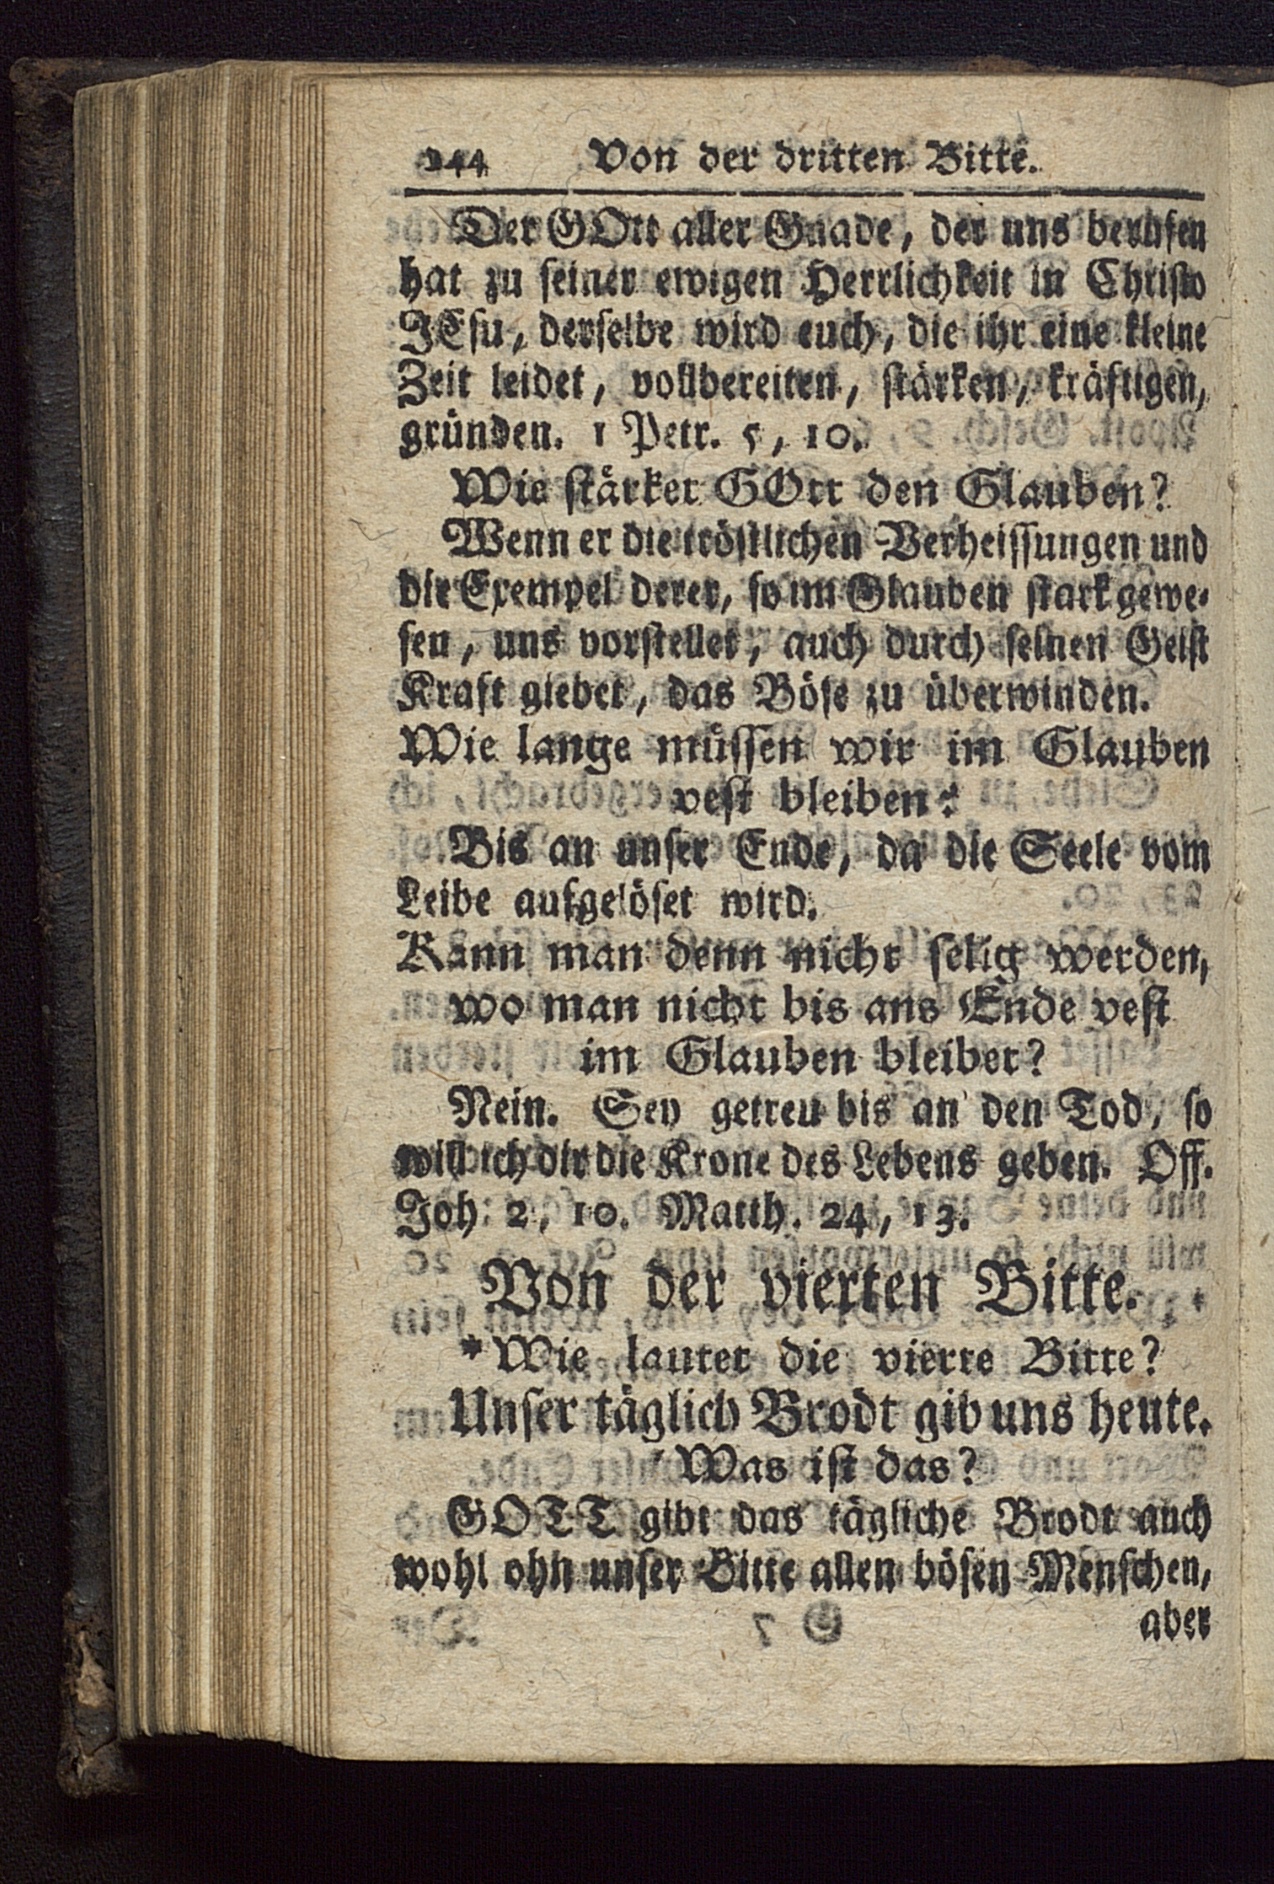 244 Von der dritten Bitte.
Der GOtt aller Gnade, der uns berufen
hat zu seiner ewigen Herrlichkeit in Christo
JEsu, derselbe wird euch, die ihr eine kleine
Zeit leidet, vollbereiten, stärken, kräftigen,
gründen. 1 Petr. 5, 10.
Wie stärket GOtt den Glauben?
Wenn er die tröstlichen Verheissungen und
die Exempel derer, so im Glauben stark gewe-
sen, uns vorstellet, auch durch seinen Geist
Kraft giebet, das Böse zu überwinden.
Wie lange müssen wir im Glauben
vest bleiben?
Bis an unser Ende, da die Seele vom
Leibe aufgelöset wird.
Kann man denn nicht selig werden,
wo man nicht bis ans Ende vest
im Glauben bleibet?
Nein. Sey getreu bis an den Tod, so
will ich dir die Krone des Lebens geben. Off.
Joh. 2, 10. Matth. 24, 13.
Von der vierten Bitte.
*Wie lautet die vierte Bitte?
Unser täglich Brodt gib uns heute.
Was ist das?
GOTT gibt das tägliche Brodt auch
wohl ohn unser Bitte allen bösen Menschen,
aber